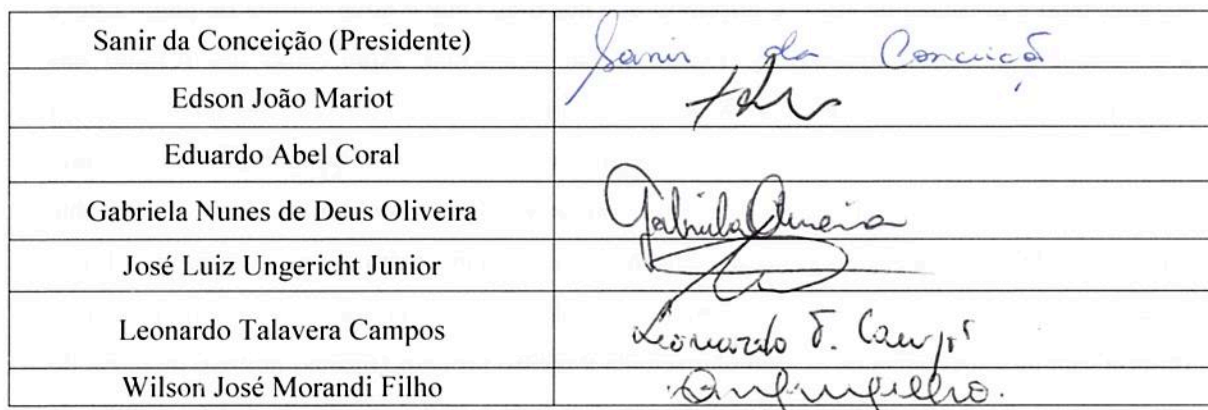 Sanir da Conceição (Presidente) Sanir da Conceição
Edson João Mariot
Eduardo Abel Coral
Gabriela Nunes de Deus Oliveira Gabriela Oliveira
José Luiz Ungericht Junior
Leonardo Talavera Campos Leonardo T. Campos
Wilson José Morandi Filho